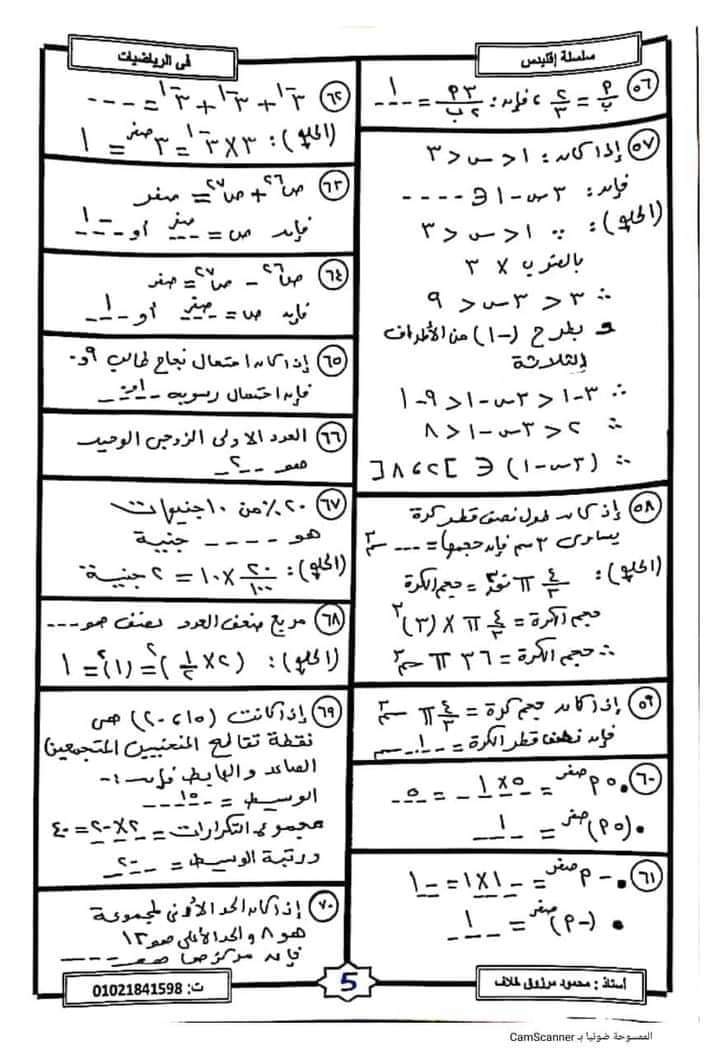 سلسلة إقليدس
فى الرياضيات
٥٦ م/ب = ٢/٣ ، فإنه: ٣م/٢ب = ١
٥٧ إذا كانه: ١ < س < ٣
فإنه: ٣س - ١ ∈ ----
(الحلو): ∵ ١ < س < ٣
بالضرب × ٣
∴ ٣ < ٣س < ٩
و بطرح (-١) من الأطراف
الثلاثة
∴ ٣-١ < ٣س-١ < ٩-١
∴ ٢ < ٣س-١ < ٨
∴ (٣س-١) ∈ ]٢،٨[
٥٨ إذا كانه طول نصف قطر كرة
يساوى ٣ سم فإنه حجمها = --- سم٣
(الحلو): ٤/٣ π نق٣ = حجم الكرة
حجم الكرة = ٤/٣ π × (٣)٣
∴ حجم الكرة = ٣٦ π سم٣
٥٩ إذا كانه حجم كرة = ٤/٣ π سم٣
فإنه نصف قطر الكرة = ١ سم
٦٠ • ٥م صفر = ٥×١ = ٥
• (٥م) صفر = ١
٦١ • -م صفر = -١×١ = -١
• (-م) صفر = ١
٦٢ ٣-١ + ٣-١ + ٣-١ = ----
(الحلو): ٣ × ٣-١ = ٣ صفر = ١
٦٣ ص٢٦ + ص٢٧ = صفر
فإنه ص = صفر أو -١
٦٤ ص٢٦ - ص٢٧ = صفر
فإنه ص = صفر أو ١
٦٥ إذا كانه احتمال نجاح طالب ٩و٠
فإنه احتمال رسوبه ١و٠
٦٦ العدد الاولى الزوجى الوحيد
هو ٢
٦٧ ٢٠٪ من ١٠ جنيهات
هو ---- جنية
(الحلو): ٢٠/١٠٠ × ١٠ = ٢ جنية
٦٨ مربع ضعف العدد نصف هو ---
(الحلو): (٢×١/٢)٢ = (١)٢ = ١
٦٩ إذا كانت (١٥،٢٠) هى
نقطة تقاطع المنحنيين المتجمعين
الصاعد والهابط فإنه :-
الوسيط = ١٥
مجموع التكرارات = ٢×٢٠ = ٤٠
ورتبة الوسيط = ٢٠
٧٠ إذا كانه الحد الأدنى لمجموعة
هو ٨ والحد الأعلى هو ١٢
فإنه مركزها هو ----
أستاذ : محمود مرزوق خلاف
5
ت: 01021841598
الممسوحة ضوئيا بـ CamScanner